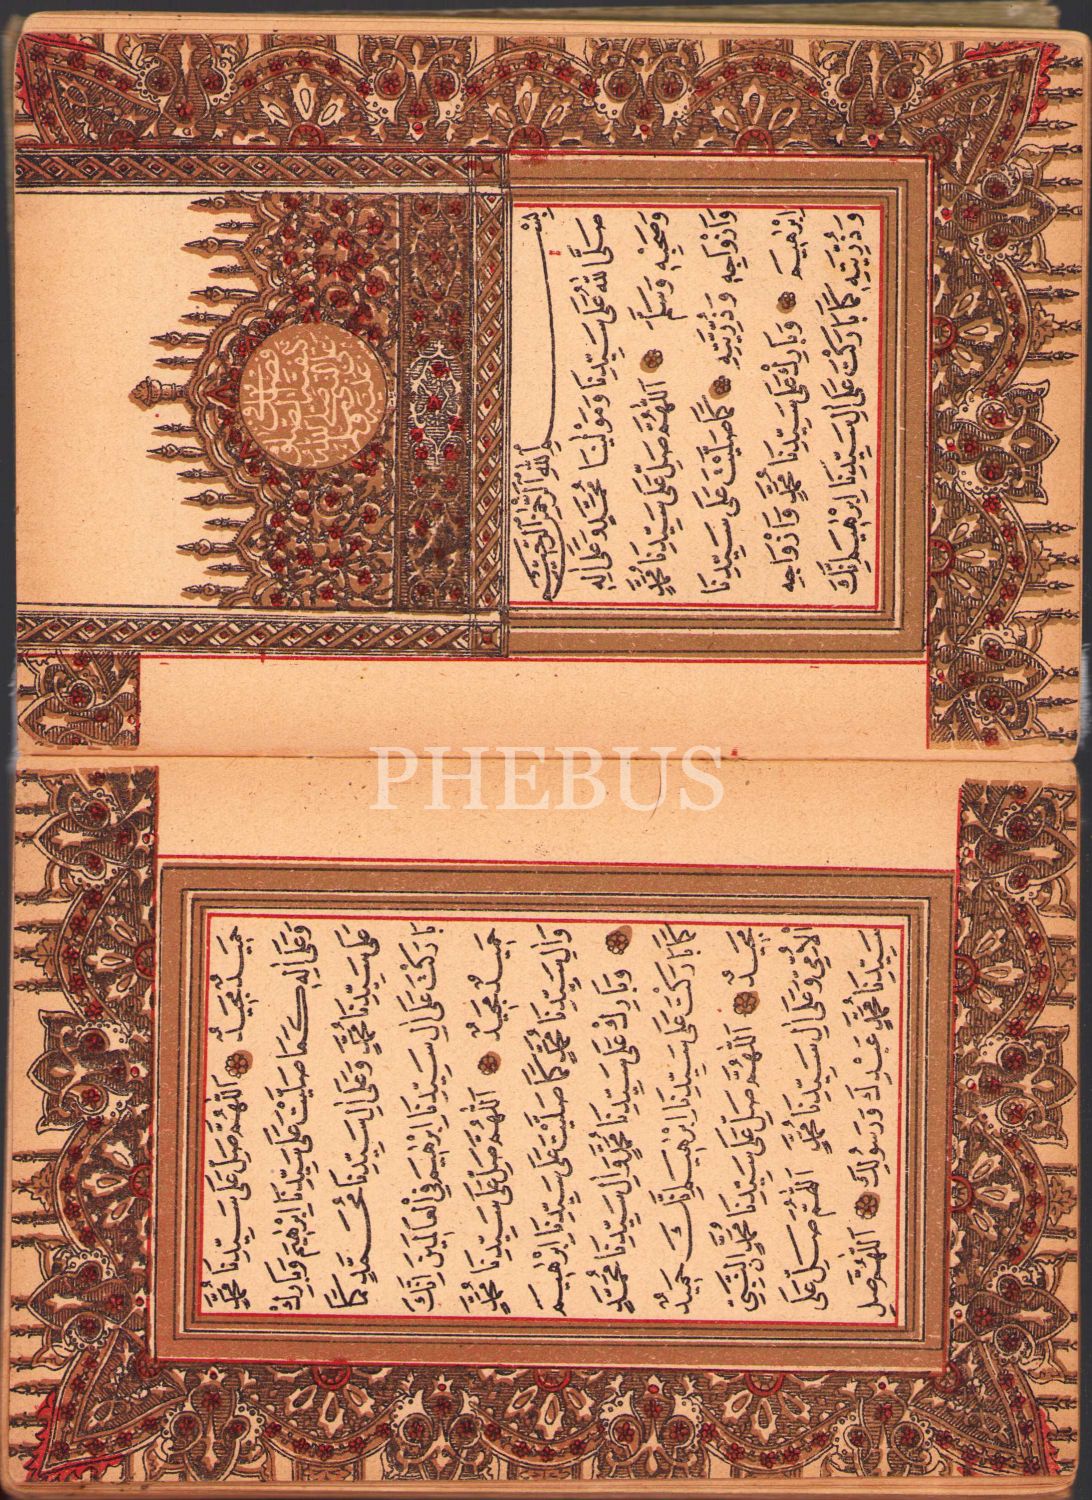 بِسْمِ اللهِ الرَّحْمٰنِ الرَّحِيمِ
صَلَّى اللهُ عَلٰى سَيِّدِنَا وَمَوْلٰينَا مُحَمَّدٍ وَعَلٰى اٰلِهِ
وَصَحْبِهِ وَسَلَّمَ اَللّٰهُمَّ صَلِّ عَلٰى سَيِّدِنَا مُحَمَّدٍ
وَاَزْوَاجِهِ وَذُرِّيَّتِهِ كَمَا صَلَّيْتَ عَلٰى سَيِّدِنَا
اِبْرٰهِيمَ وَبَارِكْ عَلٰى سَيِّدِنَا مُحَمَّدٍ وَاَزْوَاجِهِ
وَذُرِّيَّتِهِ كَمَا بَارَكْتَ عَلٰى اٰلِ سَيِّدِنَا اِبْرٰهِيمَ اِنَّكَ
حَمِيدٌ مَجِيدٌ اَللّٰهُمَّ صَلِّ عَلٰى سَيِّدِنَا مُحَمَّدٍ
وَعَلٰى اٰلِهِ كَمَا صَلَّيْتَ عَلٰى سَيِّدِنَا اِبْرٰهِيمَ وَبَارِكْ
عَلٰى سَيِّدِنَا مُحَمَّدٍ وَعَلٰى اٰلِ سَيِّدِنَا مُحَمَّدٍ كَمَا
بَارَكْتَ عَلٰى اٰلِ سَيِّدِنَا اِبْرٰهِيمَ فِي الْعَالَمِينَ اِنَّكَ
حَمِيدٌ مَجِيدٌ اَللّٰهُمَّ صَلِّ عَلٰى سَيِّدِنَا مُحَمَّدٍ
وَاٰلِ سَيِّدِنَا مُحَمَّدٍ كَمَا صَلَّيْتَ عَلٰى سَيِّدِنَا اِبْرٰهِيمَ
وَبَارِكْ عَلٰى سَيِّدِنَا مُحَمَّدٍ وَاٰلِ سَيِّدِنَا مُحَمَّدٍ
كَمَا بَارَكْتَ عَلٰى سَيِّدِنَا اِبْرٰهِيمَ اِنَّكَ حَمِيدٌ
مَجِيدٌ اَللّٰهُمَّ صَلِّ عَلٰى سَيِّدِنَا مُحَمَّدٍ النَّبِيِّ
الْاُمِّيِّ وَعَلٰى اٰلِ سَيِّدِنَا مُحَمَّدٍ اَللّٰهُمَّ صَلِّ عَلٰى
سَيِّدِنَا مُحَمَّدٍ عَبْدِكَ وَرَسُولِكَ اَللّٰهُمَّ صَلِّ
PHEBUS